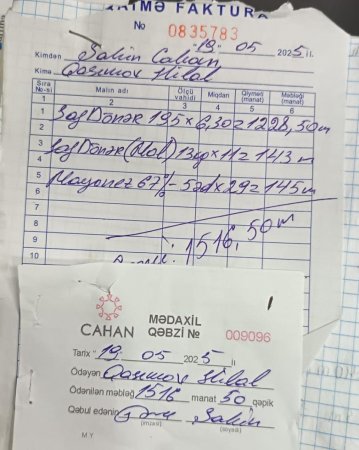 MƏ FAKTURA
No 0835783
"19" 05 2025 il.
Kimdən Şahin Cahan
Kimə Qasımov Hilal
Sıra №-si Malın adı Ölçü vahidi Miqdarı Qiyməti (manat) Məbləği (manat)
1 2 3 4 5 6
1 Sac Dönər 195 × 6,30 = 1228,50 m
2
3 Sac Dönər (Mal) 13 kg × 11 = 143 m
4
5 Mayonez 67% - 5 əd × 29 = 145 m
6
7
8 1516,50 m
9
10
CAHAN
MƏDAXİL
QƏBZİ № 009096
Tarix "19" 05 2025 il
Ödəyən Qasımov Hilal
Ödənilən məbləğ 1516 manat 50 qəpik
Qəbul edənin Şahin
(imzası) (soyadı)
M.Y.